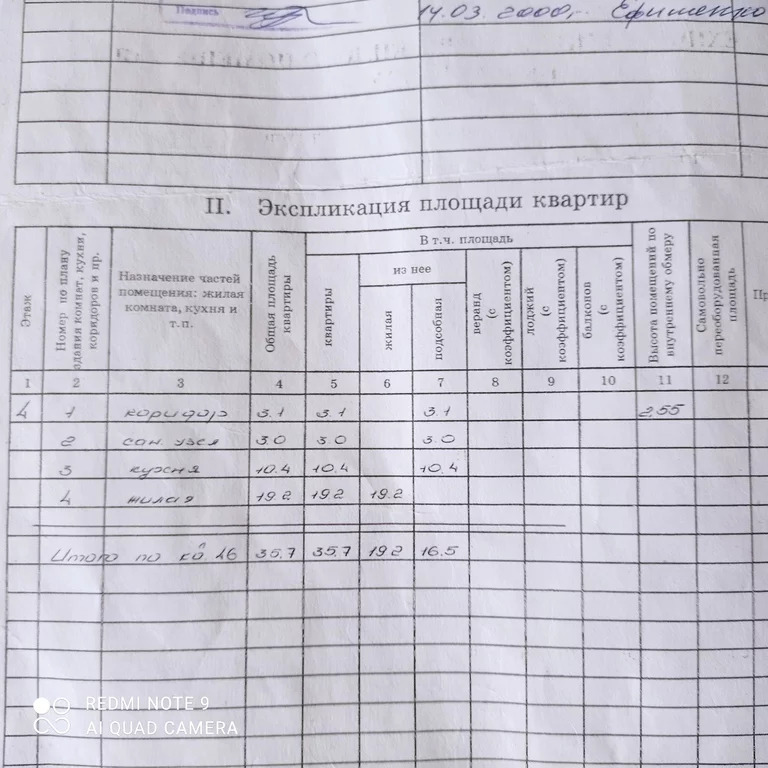 Подпись
14.03. 2000г. Ефименко
II. Экспликация площади квартир
Этаж
Номер по плану здания комнат, кухни, коридоров и пр.
Назначение частей помещения: жилая комната, кухня и т.п.
Общая площадь квартиры
В т.ч. площадь
квартиры
из нее
жилая
подсобная
веранд (с коэффициентом)
лоджий (с коэффициентом)
балконов (с коэффициентом)
Высота помещений по внутреннему обмеру
Самовольно переоборудованная площадь
1 2 3 4 5 6 7 8 9 10 11 12
4 1 коридор 3.1 3.1 3.1 2.55
2 сан. узел 3.0 3.0 3.0
3 кухня 10.4 10.4 10.4
4 жилая 19.2 19.2 19.2
Итого по кв. 35.7 35.7 19.2 16.5
REDMI NOTE 9
AI QUAD CAMERA